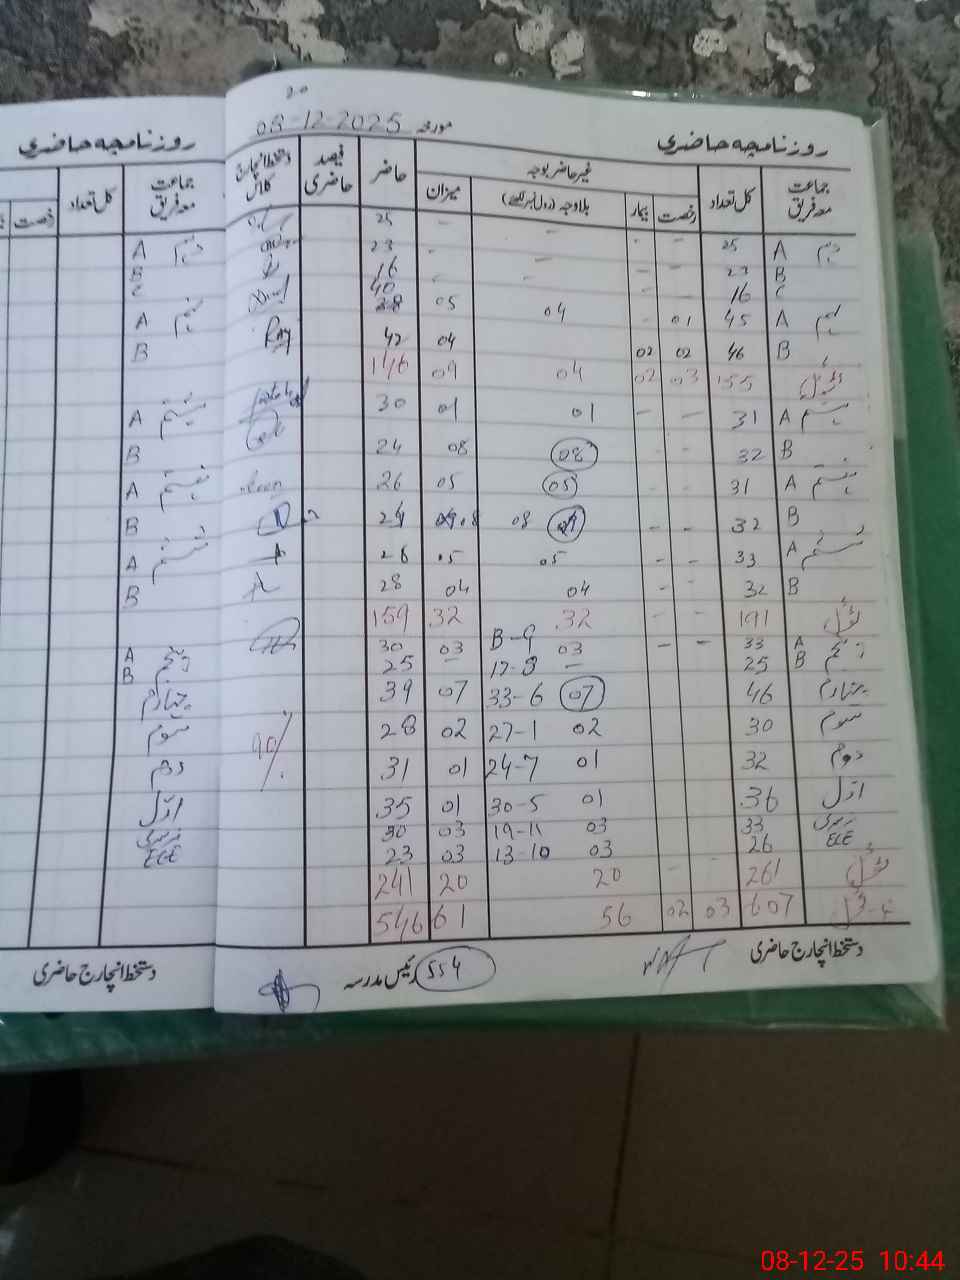 روزنامچہ حاضری
جماعت معہ فریق کل تعداد رخصت
A دہم
B
C
A نہم
B
A ہشتم
B
A ہفتم
B
A ششم
B
A پنجم
B
چہارم
سوم
دوم
اوّل
نرسری
ECE
دستخط انچارج حاضری
20
روزنامچہ حاضری مورخہ 08-12-2025
جماعت معہ فریق کل تعداد غیر حاضر بوجہ حاضر فیصد حاضری دستخط انچارج کلاس
رخصت بیمار بلاوجہ (رول نمبر لکھیے) میزان
دہم A 25 - - - - 25
B 23 - - - - 23
C 16 - - - 16
نہم A 45 01 - 04 05 40
B 46 02 02 04 42
ٹوٹل 155 03 02 04 09 146
ہشتم A 31 - - 01 01 30
B 32 - - 08 08 24
ہفتم A 31 - - 05 05 26
B 32 - - 08 08 24
ششم A 33 - - 05 05 28
B 32 - - 04 04 28
ٹوٹل 191 - - 32 32 159
پنجم A 33 - - 03 B-9 03 30
B 25 - 17-8 - 25
چہارم 46 07 33-6 07 39
سوم 30 02 27-1 02 28
دوم 32 01 24-7 01 31
اوّل 36 01 30-5 01 35
نرسری 33 03 19-11 03 30
ECE 26 03 13-10 03 23
ٹوٹل 261 - - 20 20 241
607 03 02 56 61 546
90%
دستخط انچارج حاضری
554 رئیس مدرسہ
08-12-25 10:44